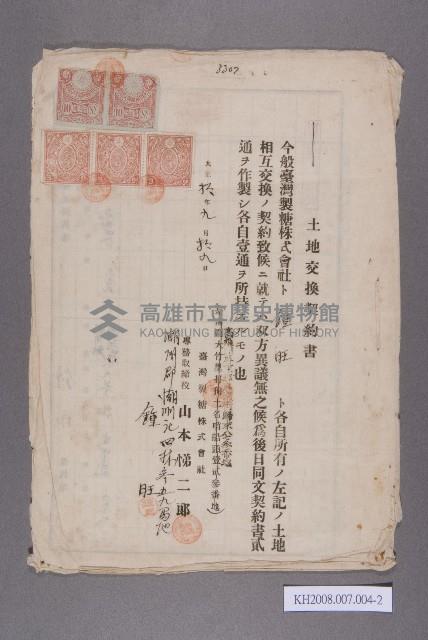 3307
土地交換契約書
今般臺灣製糖株式會社ト 鍾旺 ト各自所有ノ左記ノ土地
相互交換ノ契約致候ニ就テハ双方異議無之候爲後日同文契約書貳
通ヲ作製シ各自壹通ヲ所持スルモノ也
大正拾年九月拾九日
臺灣製糖株式會社
專務取締役 山本悌二郎
潮州郡潮州庄四林五九番地
鍾 旺
高雄市立歷史博物館
KAOHSIUNG MUSEUM OF HISTORY
KH2008.007.004-2